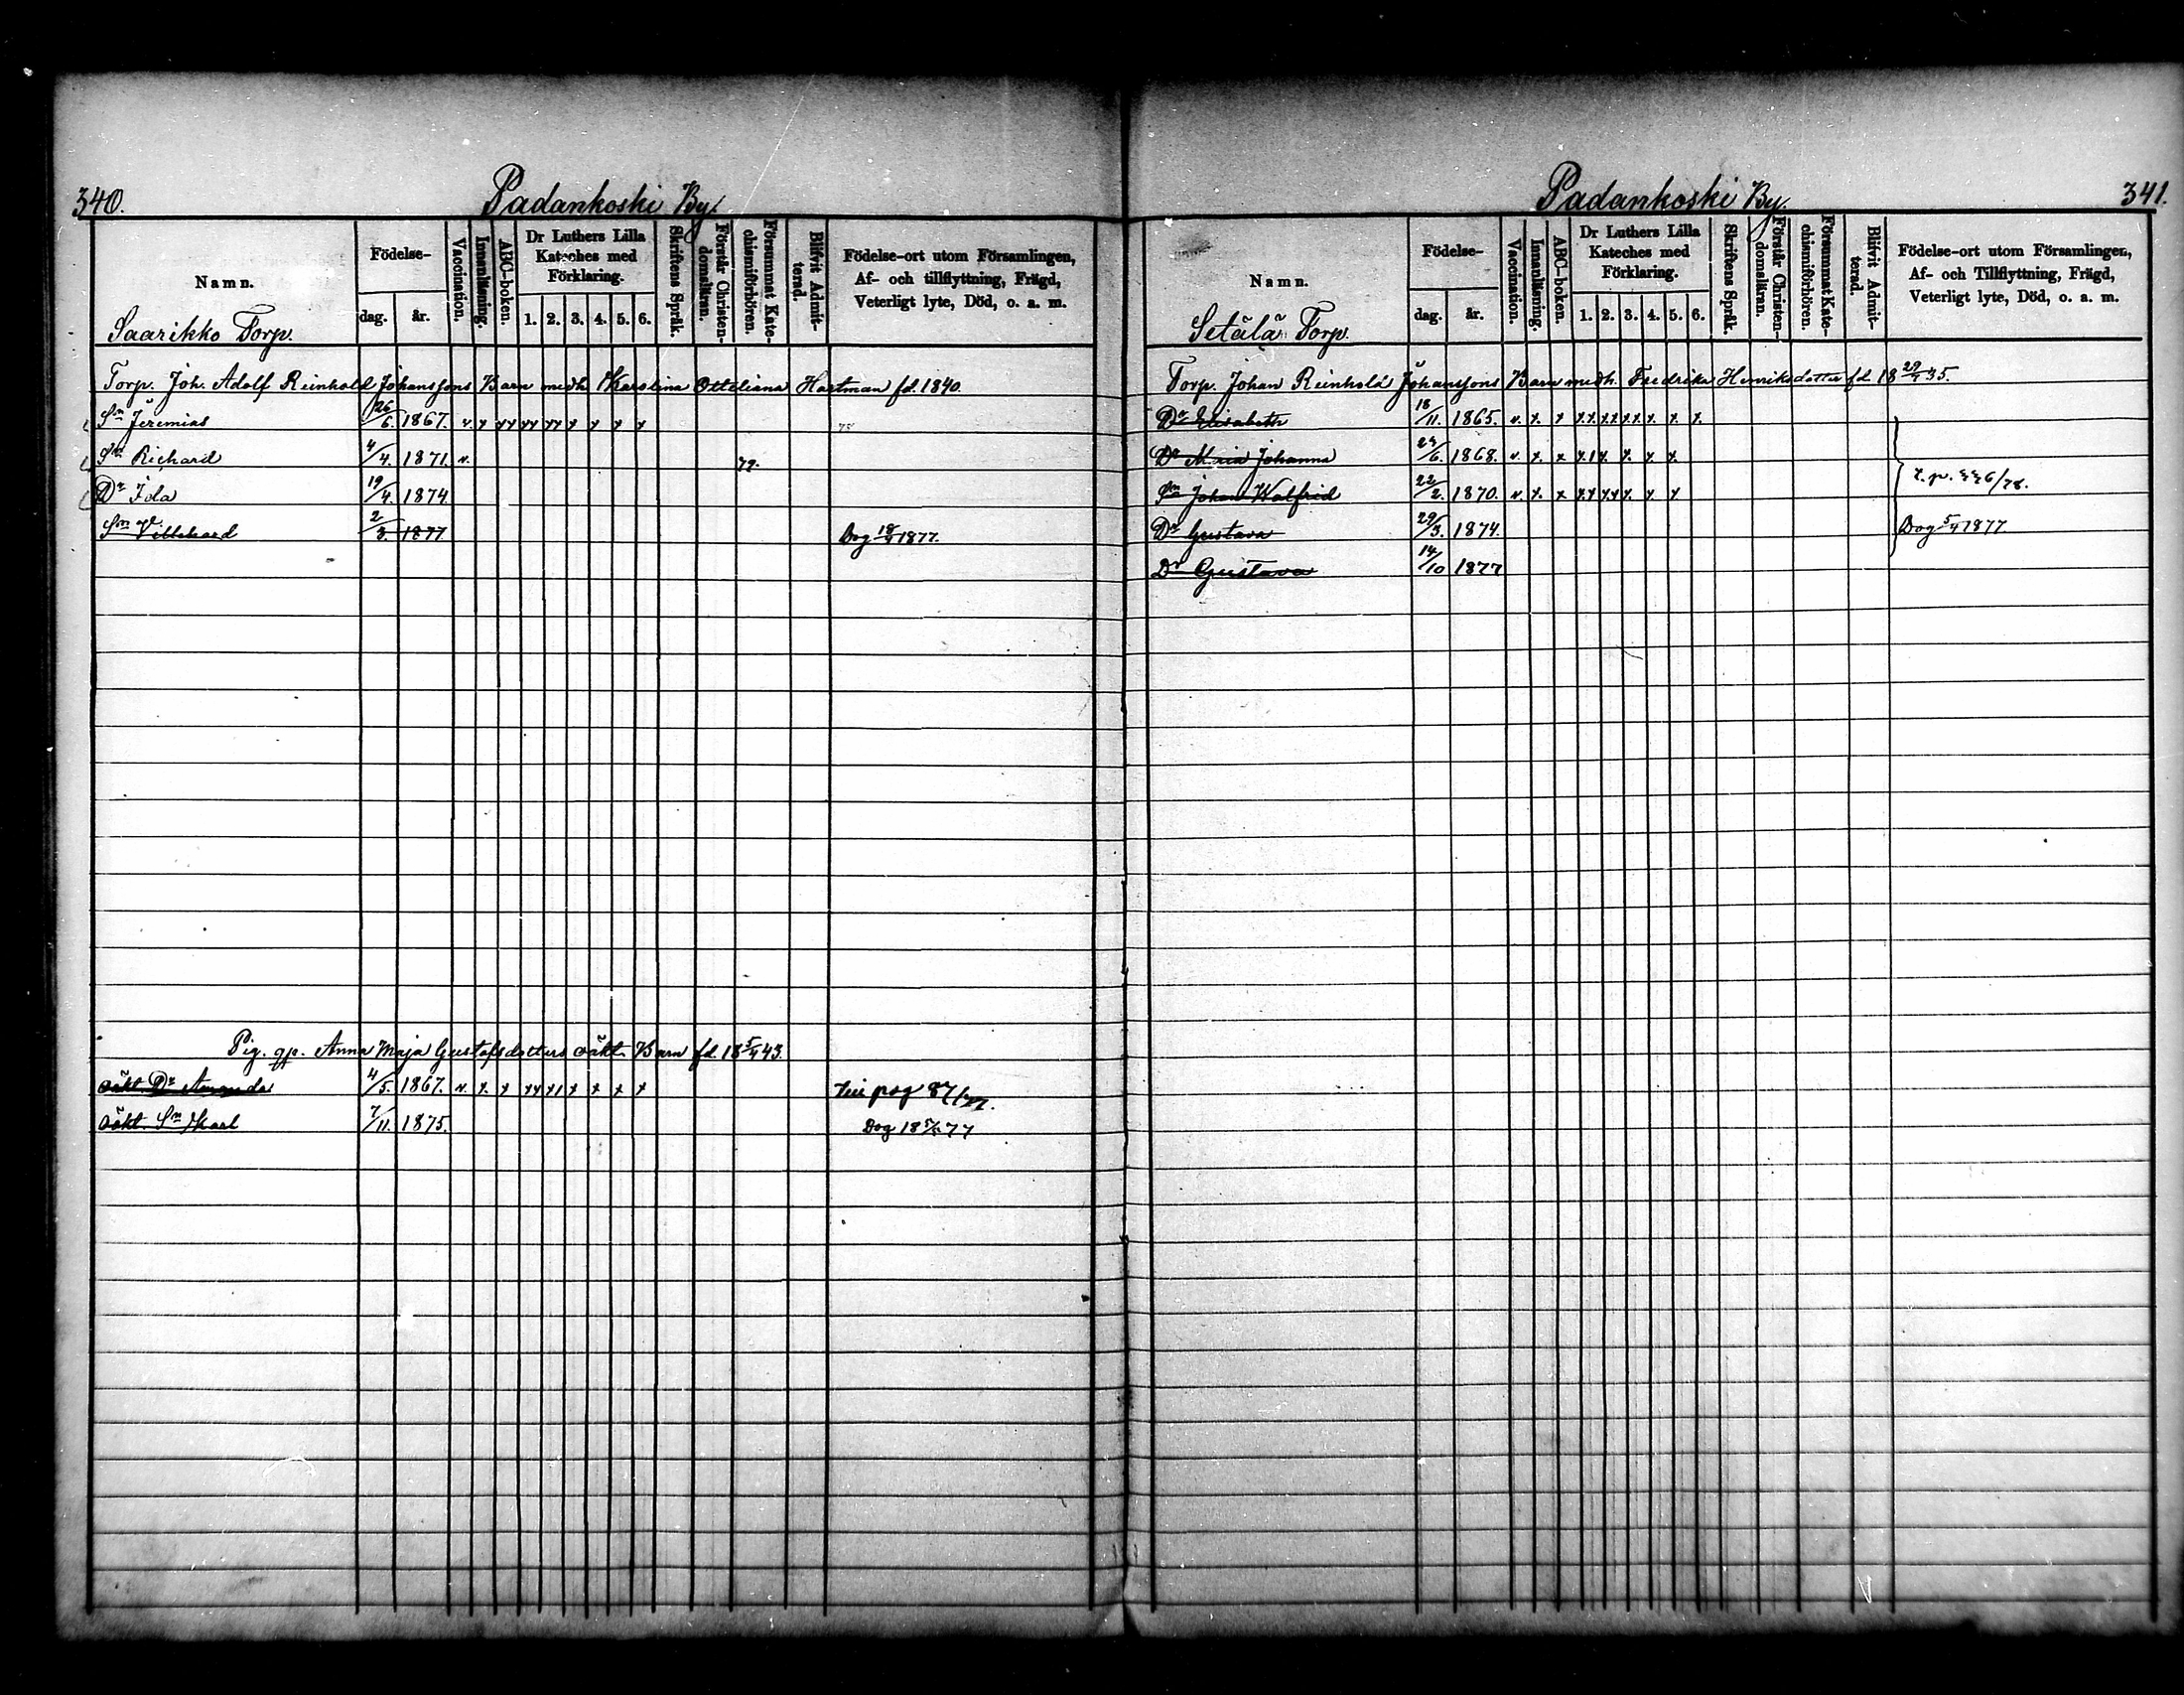 340.
Padankoski By.
Namn.
Saarikko Torp.
Födelse-
dag. år.
Vaccination.
Innanläsning.
ABC-boken.
Dr Luthers Lilla
Kateches med
Förklaring.
1. 2. 3. 4. 5. 6.
Skriftens Språk.
Förstår Christen-
domsläran.
Försummat Kate-
chismiförhören.
Blifvit Admit-
terad.
Födelse-ort utom Församlingen,
Af- och tillflyttning, Frägd,
Veterligt lyte, Död, o. a. m.
Torp. Joh. Adolf Reinhold Johanssons Barn medh. Karolina Otteliana Hartman fd. 1840.
Sn Jeremias 26/6. 1867. v. x xx xx xx x x x x
Sn Richard 4/4. 1871. v. 79.
Dr Ida 19/4. 1874
Sn Villehard 2/3. 1877 Dog 18/4 1877.
Pig. Anna Maja Gustafsdotters oäkt. Barn fd. 18 5/4 43.
oäkt Dr Amanda 4/5. 1867. v. x. x xx x1 x x x x pag 87/77.
oäkt. Sn Karl 7/11. 1875. Dog 18 77
341.
Padankoski By.
Namn.
Setälä Torp.
Födelse-
dag. år.
Vaccination.
Innanläsning.
ABC-boken.
Dr Luthers Lilla
Kateches med
Förklaring.
1. 2. 3. 4. 5. 6.
Skriftens Språk.
Förstår Christen-
domsläran.
Försummat Kate-
chismiförhören.
Blifvit Admit-
terad.
Födelse-ort utom Församlingen,
Af- och Tillflyttning, Frägd,
Veterligt lyte, Död, o. a. m.
Torp. Johan Reinhold Johanssons Barn medh. Fredrika Henriksdotter fd 18 29/4 35.
Dr Elisabeth 18/11. 1865. v. x. x x.x. xx x.x. x. x. x.
Dr Maria Johanna 24/6. 1868. v. x. x x1x. x. x. x.
Sn Johan Walfrid 22/2. 1870. v. x. x xx xx x. x x
Dr Gustava 29/3. 1874. Dog 5/4 1877.
Dr Gustava 14/10 1877